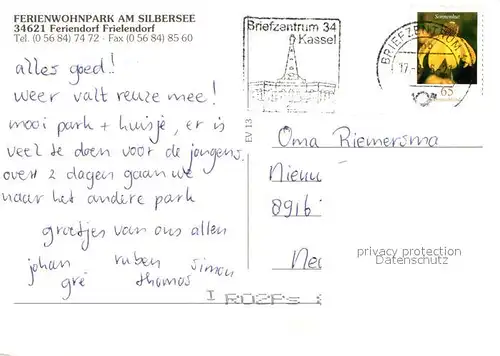 FERIENWOHNPARK AM SILBERSEE
34621 Feriendorf Frielendorf
Tel. (0 56 84) 74 72 - Fax (0 56 84) 85 60
alles goed!!
weer valt reuze mee!
mooi park + huisje, er is
veel te doen voor de jongens.
over 2 dagen gaan we
naar het andere park
groetjes van ons allen
johan ruben simon
gré thomas
EV 13
Briefzentrum 34
Kassel
BRIEFZENTRUM
Sonnenhut
65
Oma Riemersma
Nieuw
8916
Ne
privacy protection
Datenschutz